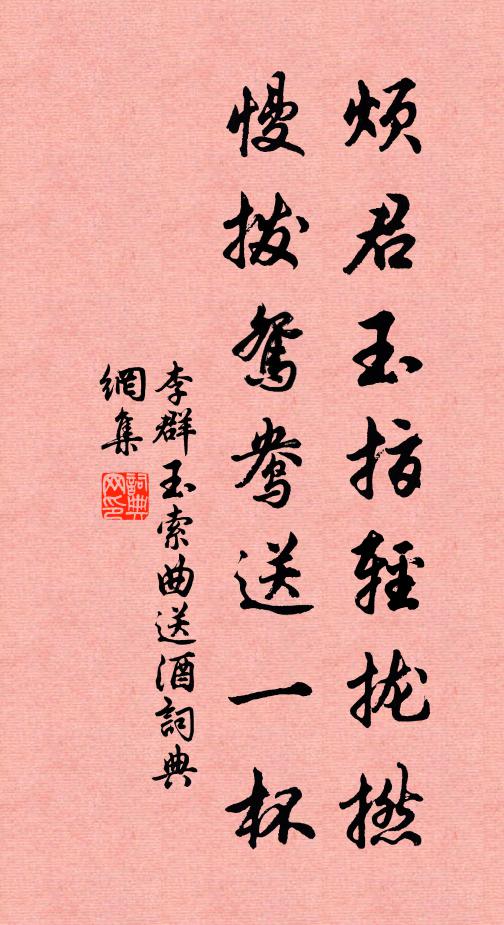 烦君玉指轻拢撚
慢拨鸳鸯送一杯
李群玉索曲送酒詞典
網集
詞典
网印